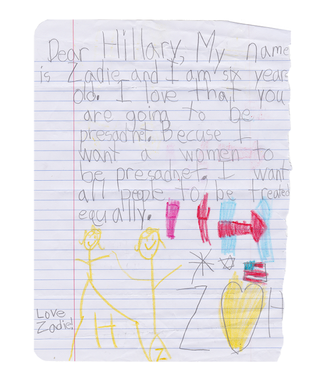 Dear Hillary, My name
is Zadie and I am six years
old. I love that you
are going to be
presadnt. Becuse I
want a women to
be presadnt. I want
all people to be treated
equally.
Love
Zadie!
H
Z
Z H